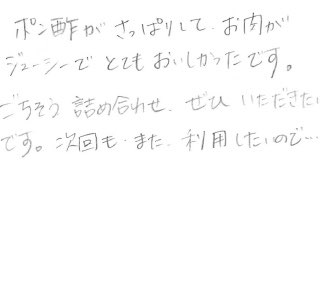 ポン酢がさっぱりして、お肉が
ジューシーでとてもおいしかったです。
ごちそう詰め合わせ、ぜひいただきたい
です。次回も、また、利用したいので…